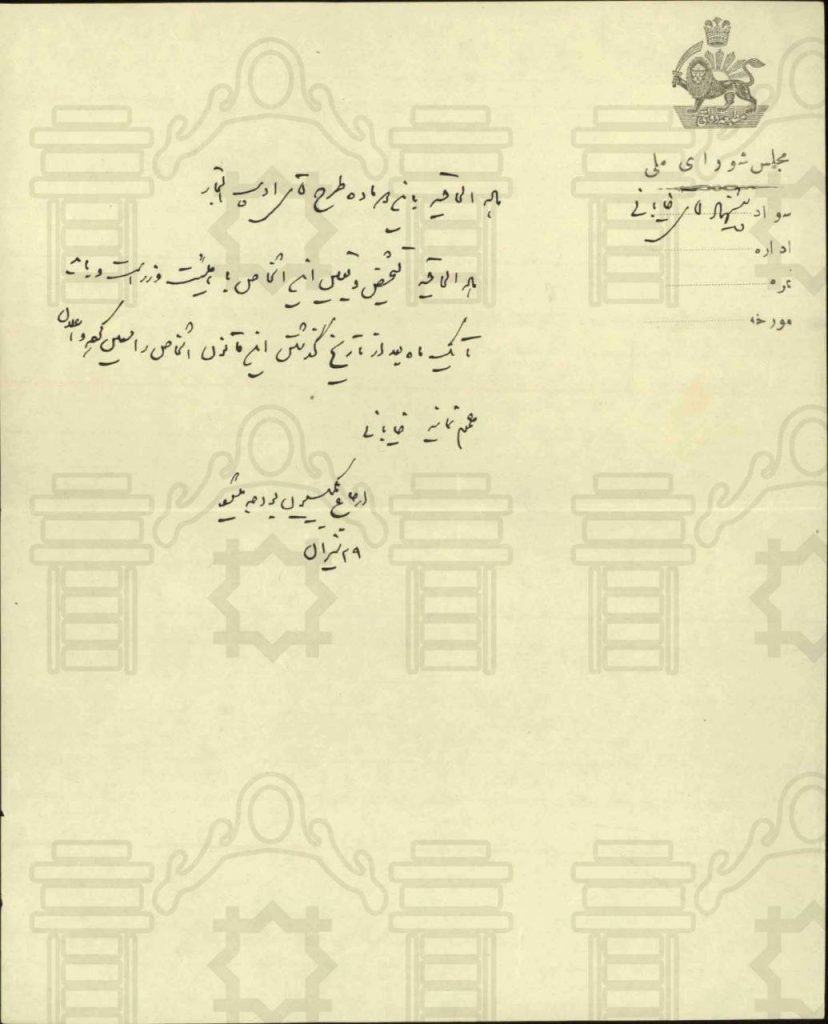 مجلس شورای ملی
سواد پیشنهاد آقای خیابانی
اداره
نمره
مورخه
ماده الحاقیه باین ماده طرح آقای ادیب التجار
ماده الحاقیه تشخیص و تعیین این اشخاص با هیئت وزراء است و باید
تا یک ماه بعد از تاریخ گذشتن این قانون اشخاص را معین کرده و اعلان
نمایند خیابانی
ارجاع بکمیسیون بودجه میشود
۲۹